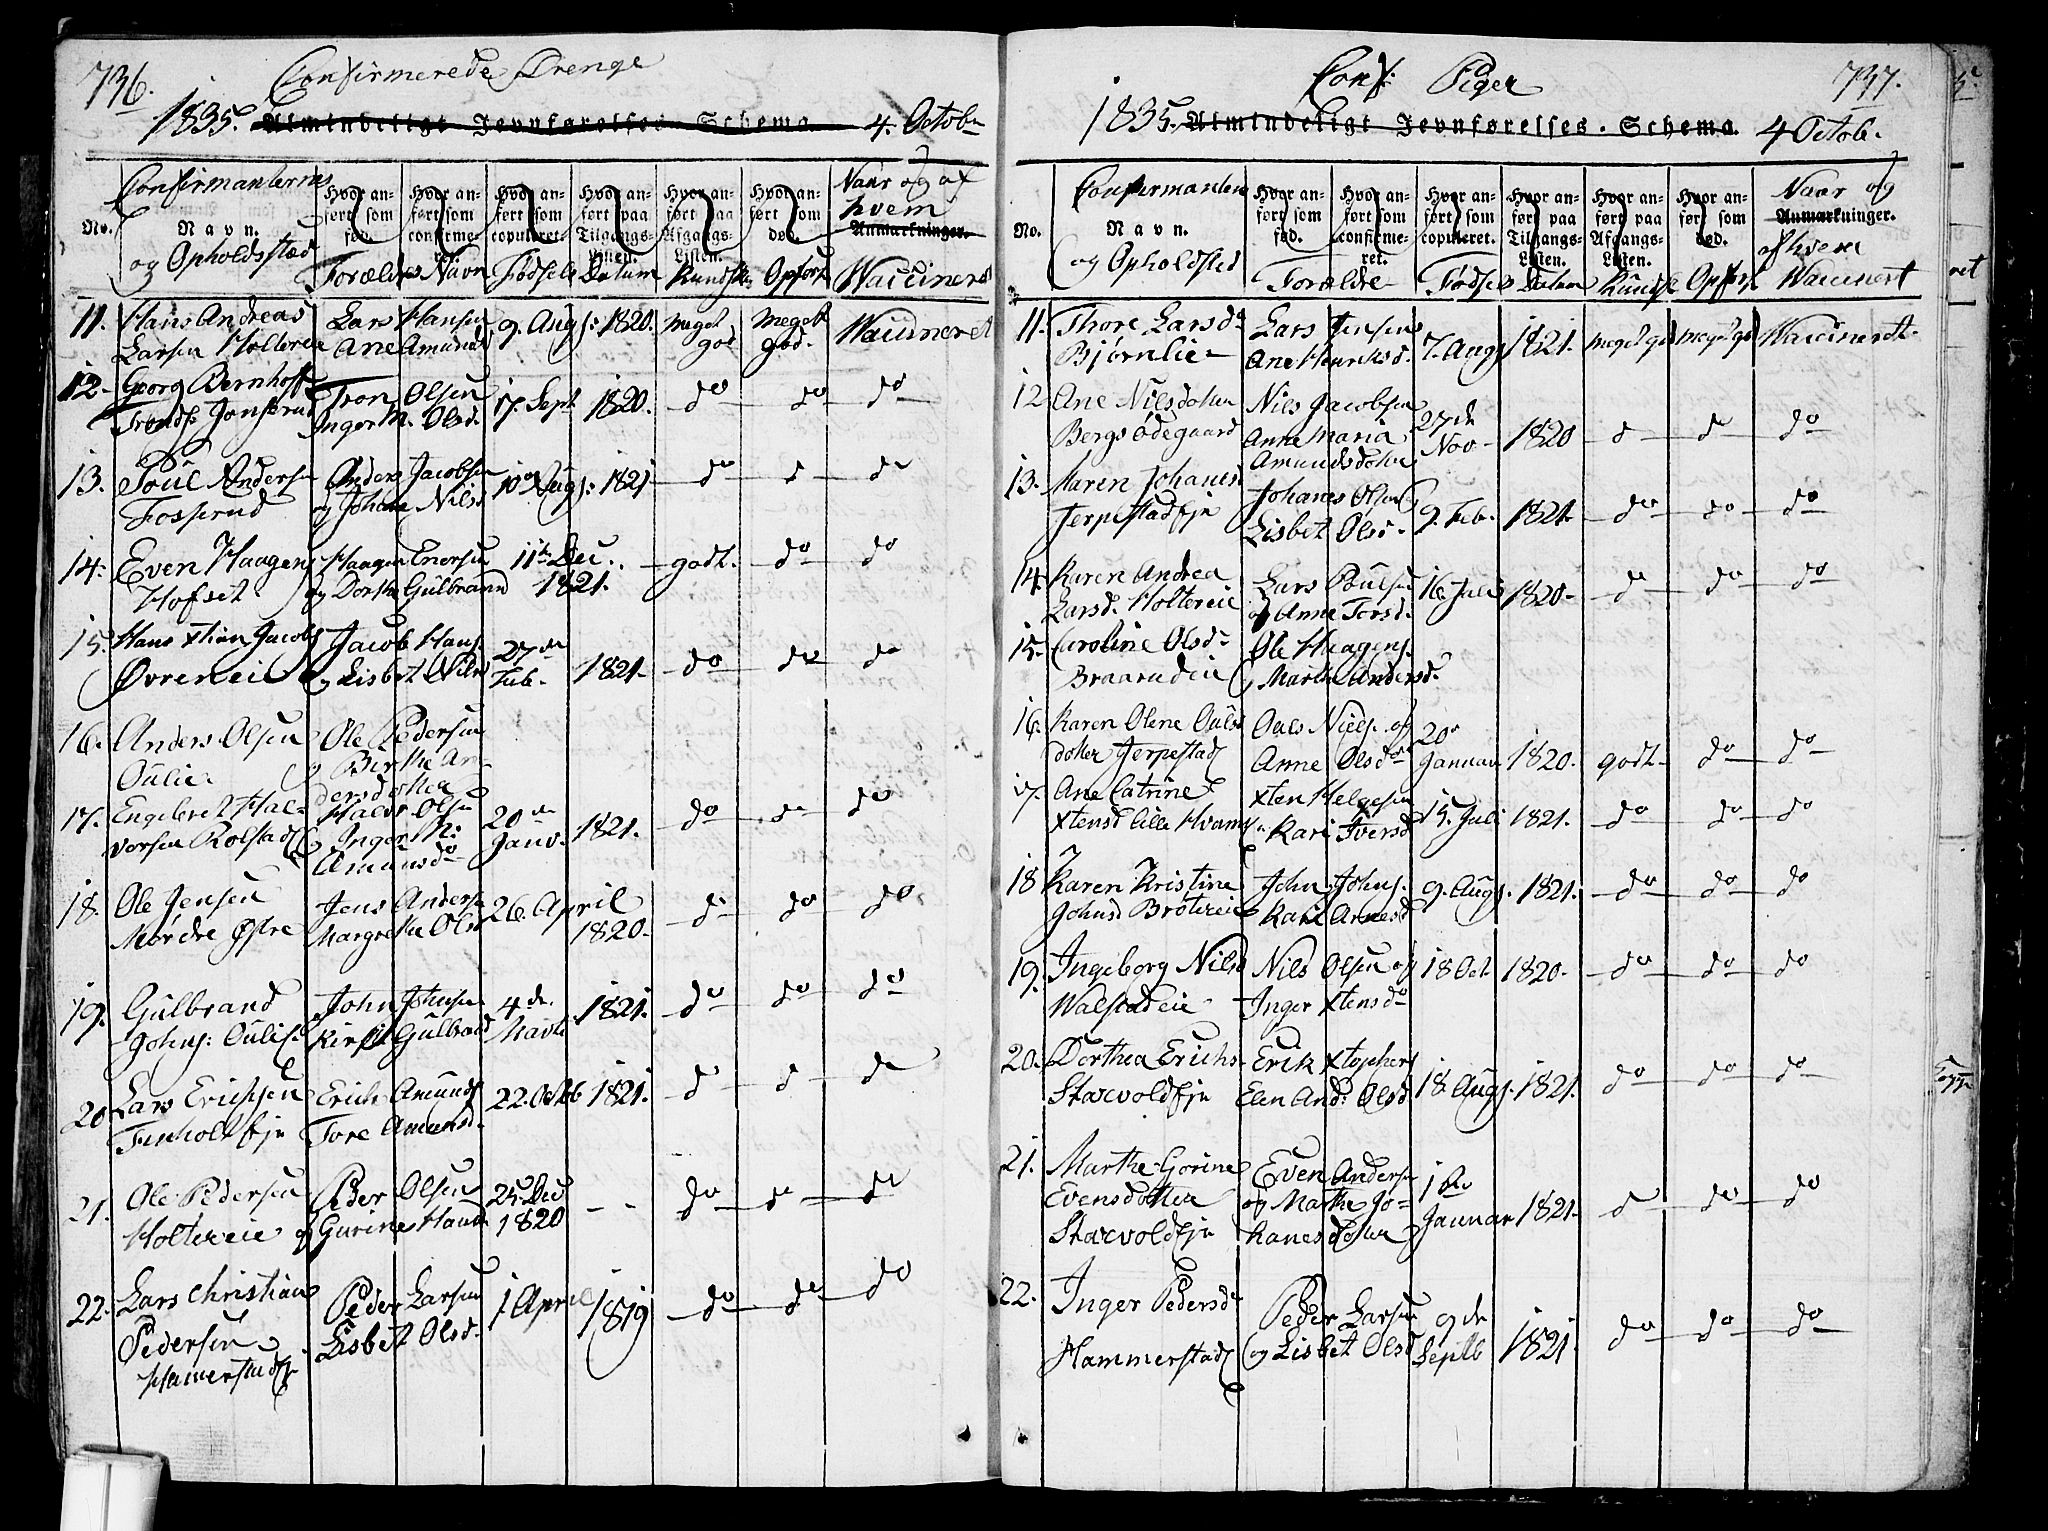 736.
Confirmerede Drenge
1835. Almindeligt Jevnførelses-Schema. 4. Octobr
No.
Confirmanternes
Navn.
og Opholdsstæd
Hvor anført som fød.
Hvor anført som confirmeret.
Hvor anført som copuleret.
Hvor anført paa Tilgangs-Listen.
Hvor anført paa Afgangs-Listen.
Hvor anført som død.
Naar og af
hvem
Anmærkninger.
Forældres Navn Fødsels Datum Kundsk. Opførs. Vaccineret
11. Hans Andreas Lars Hansen 9. Augs: 1820. Meget Meget Vaccineret
Larsen Holtereie Ane Amunds god god.
12. Georg Bernhoff Tron Olsen 17. Sept 1820. do do do
Tronds. Jonsrud Inger M. Olsd.
13. Poul Anders. Anders Jacobsen 10 Augs: 1821 do d do
Fossrud og Johane Nilsd
14. Even Haagens. Haagen Enersen 11te Dec. godt. do do
Hofset og Dorthe Gulbrand 1821.
15. Hans Xtian Jacobs Jacob Hans. 27de 1821. do do do
Øvreneie og Lisbet Nilsd Feb.
16. Anders Olsen Ole Pedersen
Oulie og Birthe Andersdotter
17. Engebret Hal- Halvr Olsen 20de 1821. do do do
vorsen Rolstad og Inger M: Janv.
Amundsdr
18. Ole Jensen Jens Anders. 26. April do do do
Mørdre Østre Margrethe Olsd 1820.
19. Gulbrand John Johnsen 4de 1821. do do do
Johns: Oulie Kirsti Gulbrand Marti
20 Lars Erichsen Erich Amunds 22. Octob 1821. do d do
Finholt Eje Tore Amundsd.
21. Ole Pedersen Peder Olsen 25 Dec do do do
Holtereie og Gurine Hansd 1820
22. Lars Christian Peder Larsen 1 April 1819 do do do
Pedersen Lisbet Olsd.
Hamerstad
737.
Conf: Piger
1835. Almindeligt Jevnførelses-Schema. 4 Octob.
No.
Confirmanten
Navn.
og Opholdsted
Hvor anført som fød.
Hvor anført som confirmeret.
Hvor anført som copuleret.
Hvor anført paa Tilgangs-Listen.
Hvor anført paa Afgangs-Listen.
Hvor anført som død.
Naar og
Anmærkninger.
af hvem
Forældre Fødsels Datum Kundsk Opførs Vaccinert
11. Thore Larsdr Lars Jensen 7. Augs 1821. meget god meget god Vaccineret
Bjørnlie Ane Henriksd.
12 Ane Nilsdotter Nils Jacobsen 27de 1820 d d do
Bergsødegaard Anne Maria Nov
Amundsdotter
13. Maren Johanes. Johanes Olsen 9. Feb. 1821. do do do
Jerpestadeje Lisbet Olsd.
14. Karen Andrea Lars Poulsen 16 Juli 1820 do do do
Larsd. Holtereie og Anne Torsd.
15. Caroline Olsdr Ole Haagens.
Braarudeie og Marthe Andersd.
16. Karen Olene Oules Oules Niels. og 20de 1820. godt do do
dotter Jerpestad Anne Olsdr Januar
17. Ane Catrine Xten Helgesen 15. Juli 1821. do do do
Xtensd Lille Hvam Kari Iversd
18 Karen Kristine John Johns. 9. Augs. 1821. do do do
Johnsd Brotereie Kari Arnesd
19. Ingeborg Nilsd Nils Olsen og 18 Oct 1820. do do do
Walstadeie Inger Xtensdr
20. Dorthea Erichs. Erik Xtophers 18. Augs. 1821. do do do
Starvoldeje Elen And: Olsd
21. Marthe Gorine Even Andersen 1de 1821. d do do
Evensdotter og Marthe Jo- Januar
Starvoldeje hanesdotter
22. Inger Pedersdr Peder Larsen 9de 1821 do do do
Hammerstad og Lisbet Olsd Septb